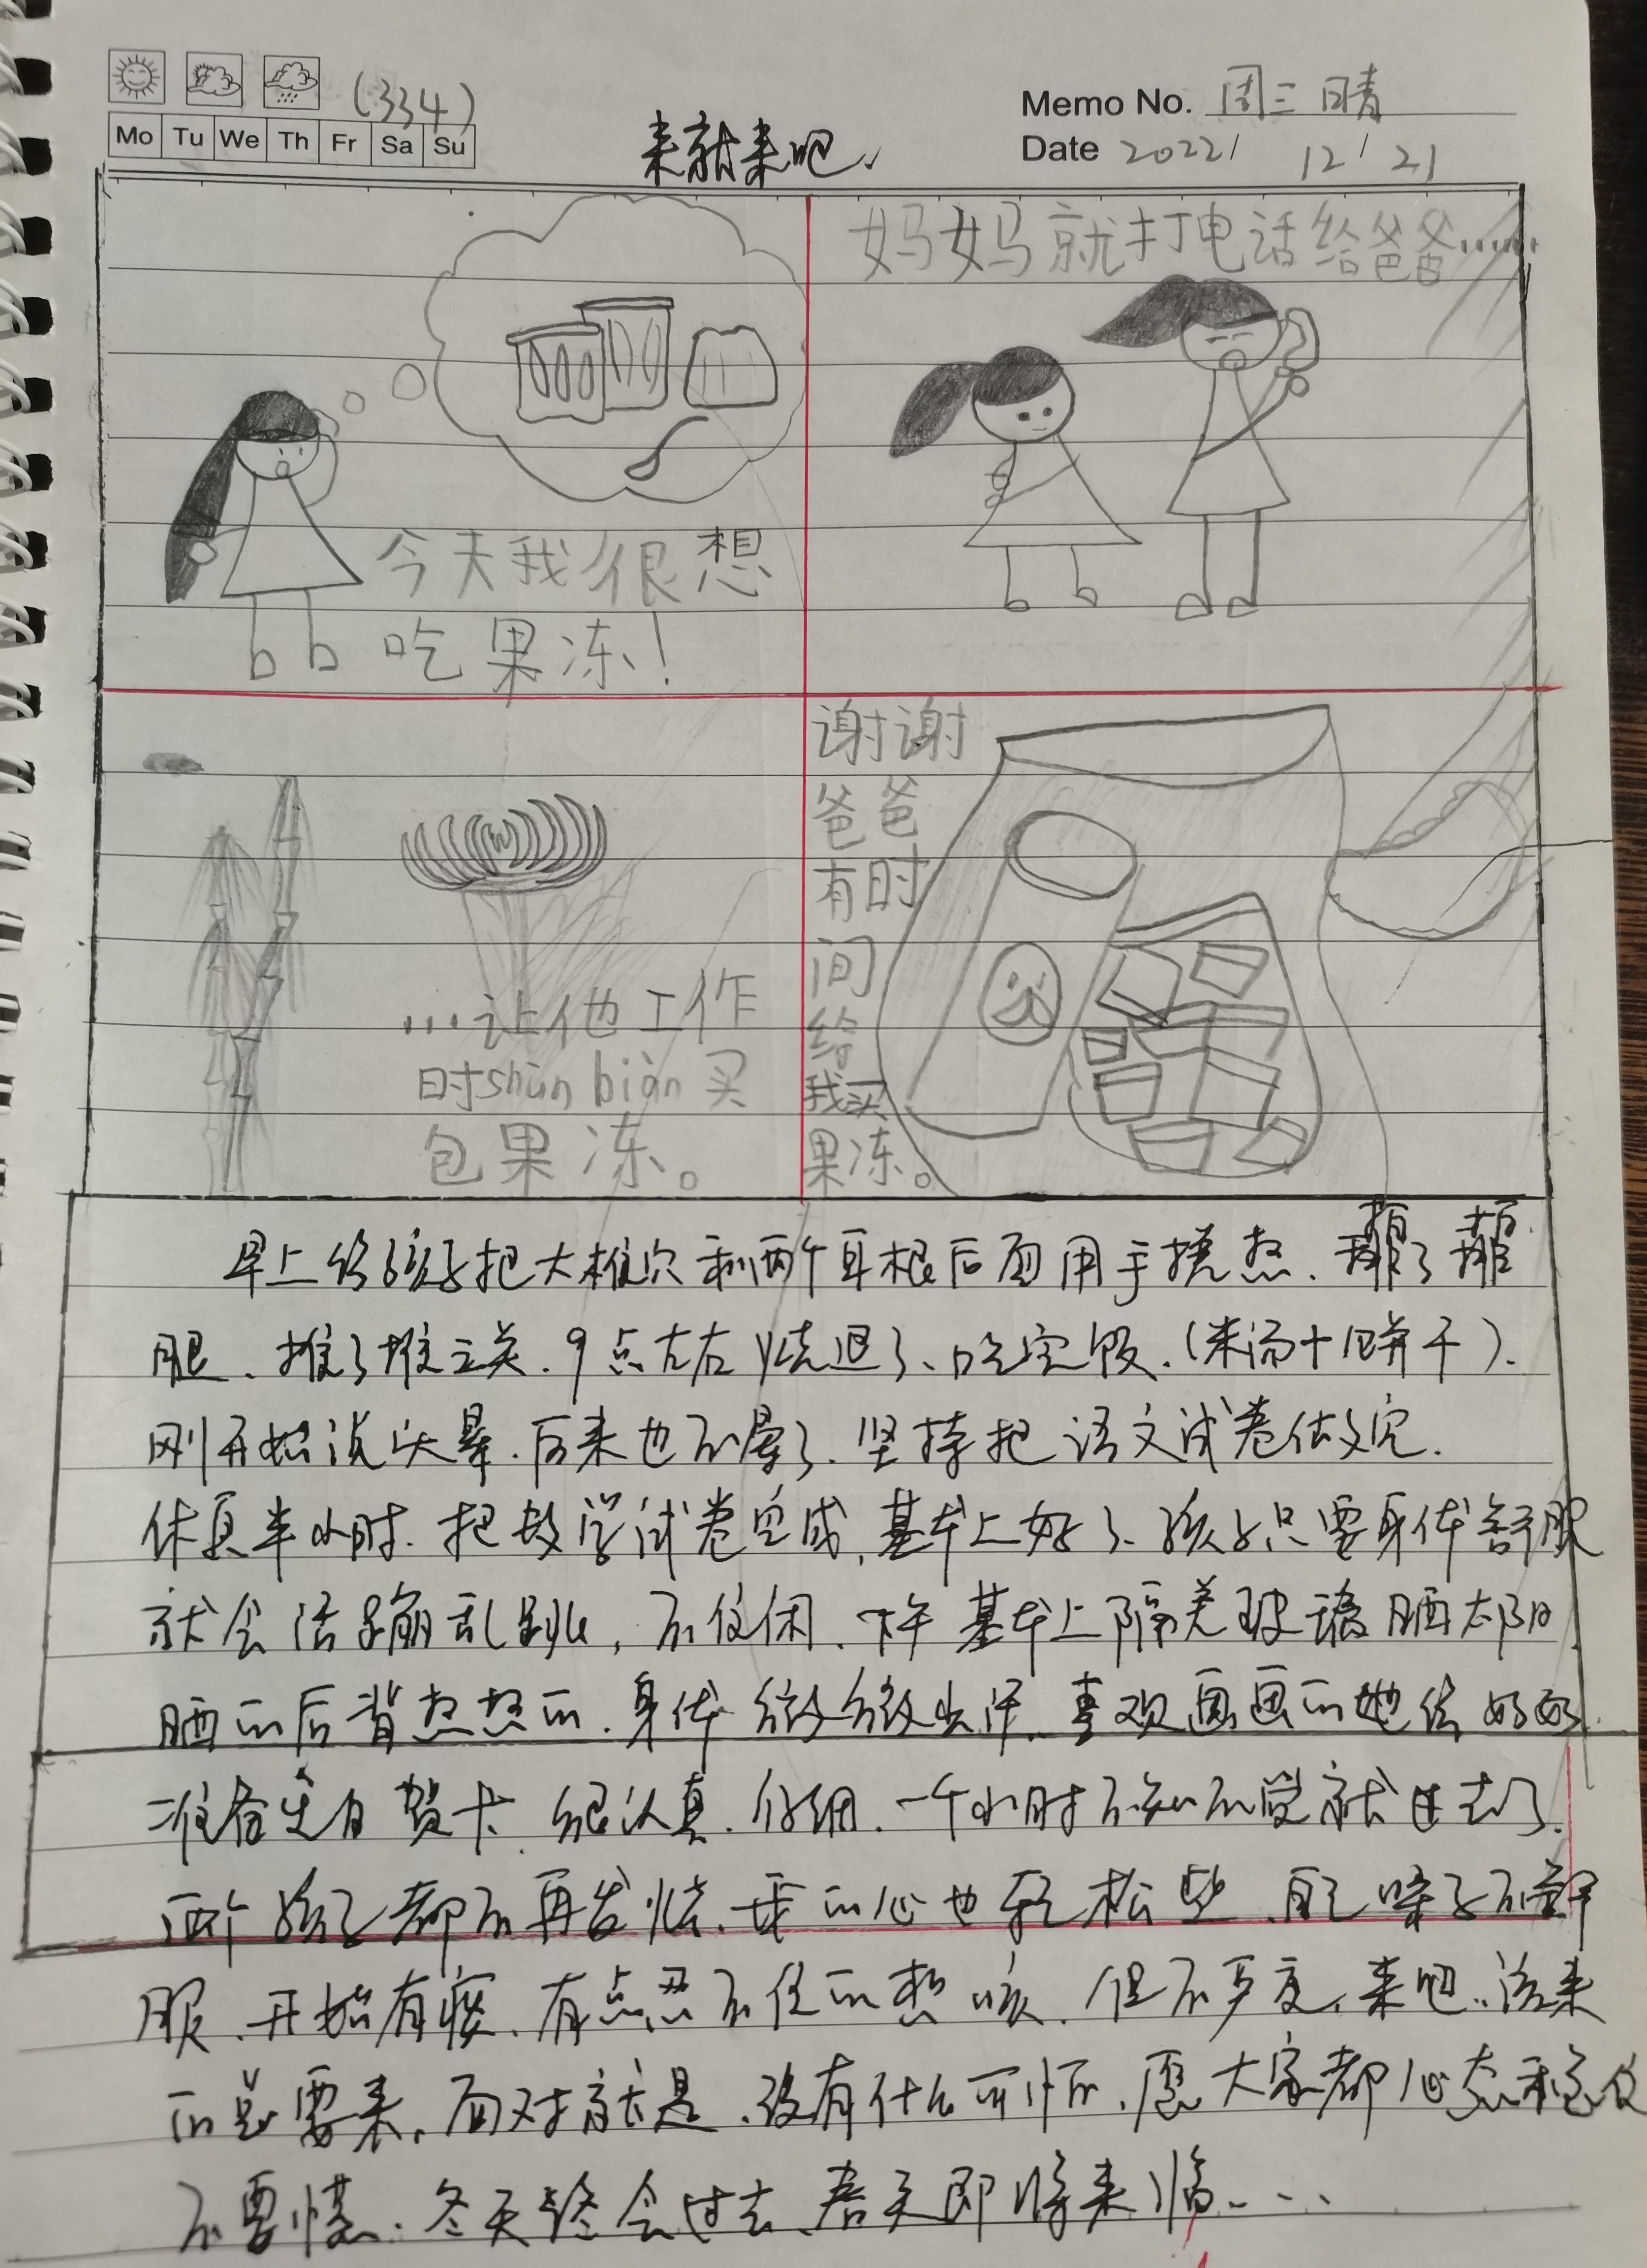 (334)
Mo Tu We Th Fr Sa Su
来就来吧
Memo No. 周三 晴
Date 2022/ 12/ 21
今天我很想
吃果冻!
妈妈就打电话给爸爸……
...让他工作
时shùn biàn买
包果冻。
谢谢
爸爸
有时
间
给
我买
果冻。
早上给孩子把大椎穴和两个耳根后面用手搓热、蘸了蘸
腿、推了推三关.9点左右烧退了、吃完饭.(米汤+饼干).
刚开始说头晕.后来也不晕了.坚持把语文试卷做完.
休息半小时.把数学试卷完成,基本上好了、孩子只要身体舒服
就会活蹦乱跳,不住闲.下午基本上隔着玻璃晒太阳
晒的后背热热的.身体微微出汗.喜欢画画的她给好友
准备生日贺卡 很认真.仔细.一个小时不知不觉就过去了.
两个孩子都不再发烧.我的心也轻松些、自己嗓子不舒
服、开始有痰、有点忍不住的想咳.但不严重,来吧..该来
的总要来,面对就是.没有什么可怕.愿大家都心态
不要慌.冬天终会过去、春天即将来临...